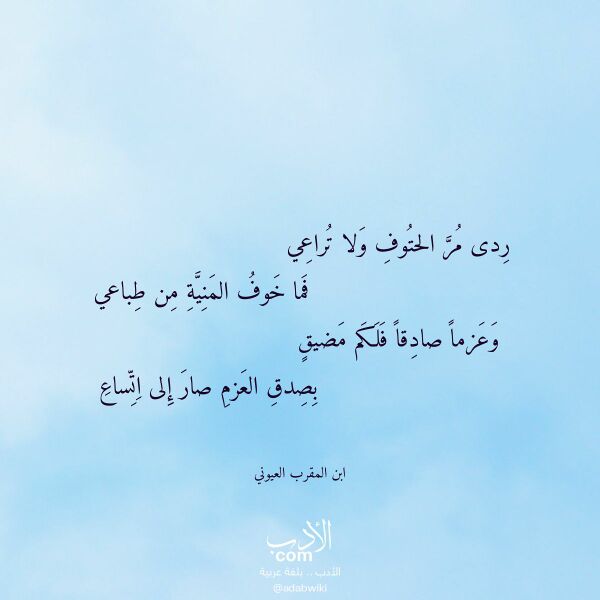 رِدى مُرَّ الحتُوفِ وَلا تُراعِي
فَما خَوفُ المَنِيَّةِ مِن طِباعي
وَعَزماً صادِقاً فَلَكَم مَضيقٍ
بِصِدقِ العَزمِ صارَ إِلى اِتِّساعِ
ابن المقرب العيوني
الأدب
.com
الأدب .. بلغة عربية
@adabwiki